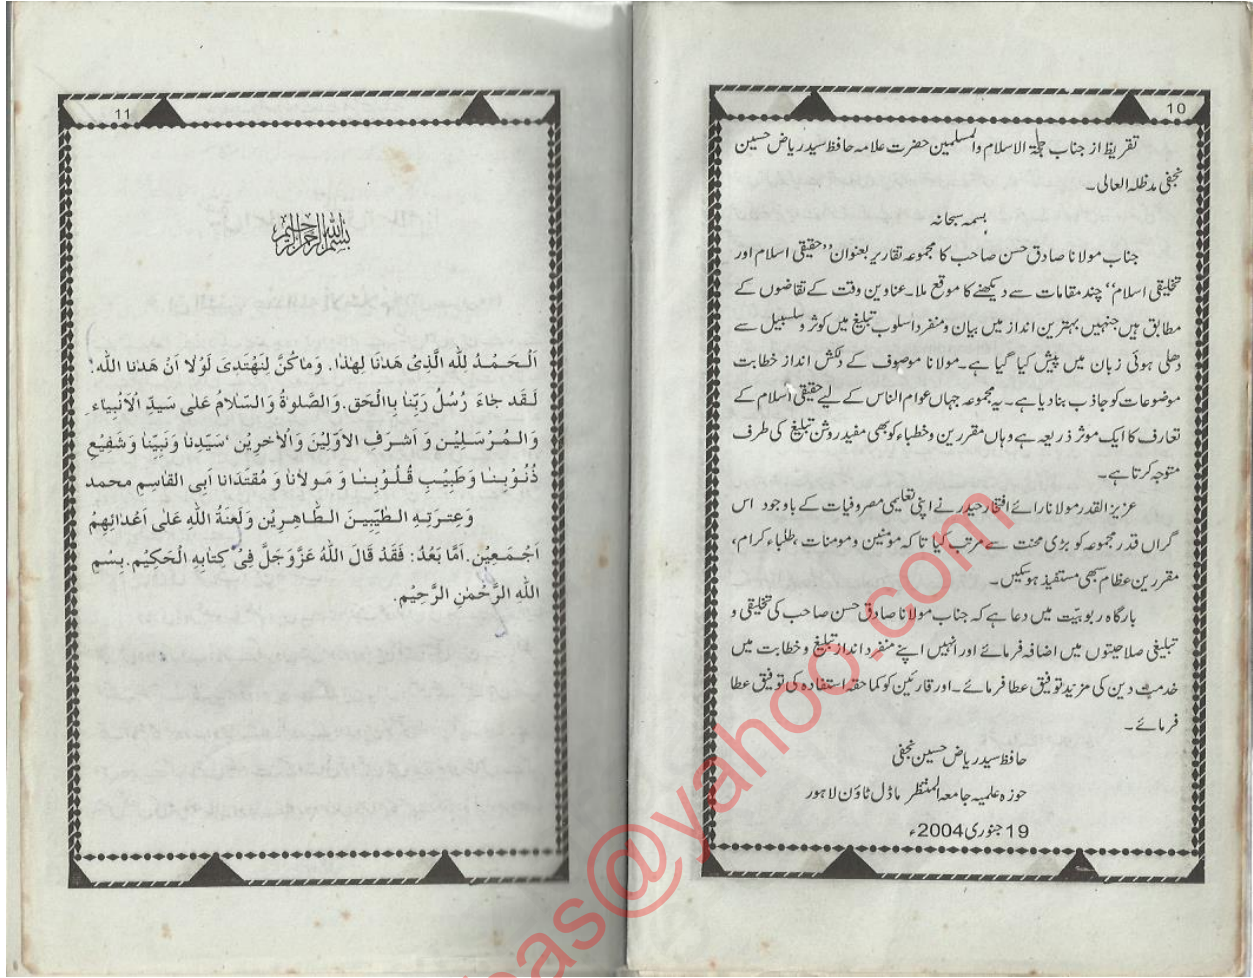 10
تقریظ از جناب حجۃ الاسلام والمسلمین حضرت علامہ حافظ سید ریاض حسین
نجفی مدظلہ العالی۔
بسمہ سبحانہ
جناب مولانا صادق حسن صاحب کا مجموعہ تقاریر بعنوان ’’حقیقی اسلام اور
تخلیقی اسلام‘‘ چند مقامات سے دیکھنے کا موقع ملا۔ عناوین وقت کے تقاضوں کے
مطابق ہیں جنہیں بہترین انداز میں بیان و منفرد اسلوب تبلیغ میں کوثر و سلسبیل سے
دھلی ہوئی زبان میں پیش کیا گیا ہے۔ مولانا موصوف کے دلکش انداز خطابت
موضوعات کو جاذب بنا دیا ہے۔ یہ مجموعہ جہاں عوام الناس کے لیے حقیقی اسلام کے
تعارف کا ایک موثر ذریعہ ہے وہاں مقررین و خطباء کو بھی مفید روشن تبلیغ کی طرف
متوجہ کرتا ہے۔
عزیز القدر مولانا رائے افتخار حیدر نے اپنی تعلیمی مصروفیات کے باوجود اس
گراں قدر مجموعہ کو بڑی محنت سے مرتب کیا تا کہ مومنین و مومنات ،طلباء کرام،
مقررین عظام سبھی مستفیذ ہو سکیں۔
بارگاہ ربوبیّت میں دعا ہے کہ جناب مولانا صادق حسن صاحب کی تخلیقی و
تبلیغی صلاحیتوں میں اضافہ فرمائے اور انہیں اپنے منفرد انداز تبلیغ و خطابت میں
خدمت دین کی مزید توفیق عطا فرمائے۔ اور قارئین کو کما حقہ استفادہ کی توفیق عطا
فرمائے۔
حافظ سید ریاض حسین نجفی
حوزہ علمیہ جامعہ المنتظر ماڈل ٹاؤن لاہور
19 جنوری 2004ء
11
بسم اللہ الرحمن الرحیم
اَلْحَمْدُ لِلّٰہِ الَّذِیْ ھَدٰنَا لِھٰذَا. وَمَا کُنَّ لِنَھْتَدِیَ لَوْلَا اَنْ ھَدٰنَا اللّٰہ!
لَقَد جَاءَ رُسُلُ رَبِّنَا بِاالْحَق.وَالصَّلوٰۃُ وَالسَّلَامُ عَلٰی سَیِّدِ الْاَنْبِیَاءِ.
وَالْمُرْسَلِیْنَ وَ اَشْرَفِ الْاَوَّلِیْنَ وَالْاٰخِرِیْن ’سَیِّدِنَا وَنَبِیِّنَا وَشَفِیْعِ
ذُنُوْبِنَا وَطَبِیْبِ قُلُوْبِنَا وَ مَوْلَانَا وَ مُقْتَدَانَا اَبِی الْقَاسِمِ محمد
وَعِتْرَتِہِ الطَّیِّبِیْنَ الطَّاھِرِیْن وَلَعْنَۃُ اللّٰہِ عَلٰی اَعْدَائِھِمْ
اَجْمَعِیْن.اَمَّا بَعْدُ: فَقَدْ قَالَ اللّٰہُ عَزَّوَجَلَّ فِیْ کِتَابِہِ الْحَکِیْمِ.بِسْمِ
اللّٰہِ الرَّحْمٰنِ الرَّحِیْم.
bas@yahoo.com